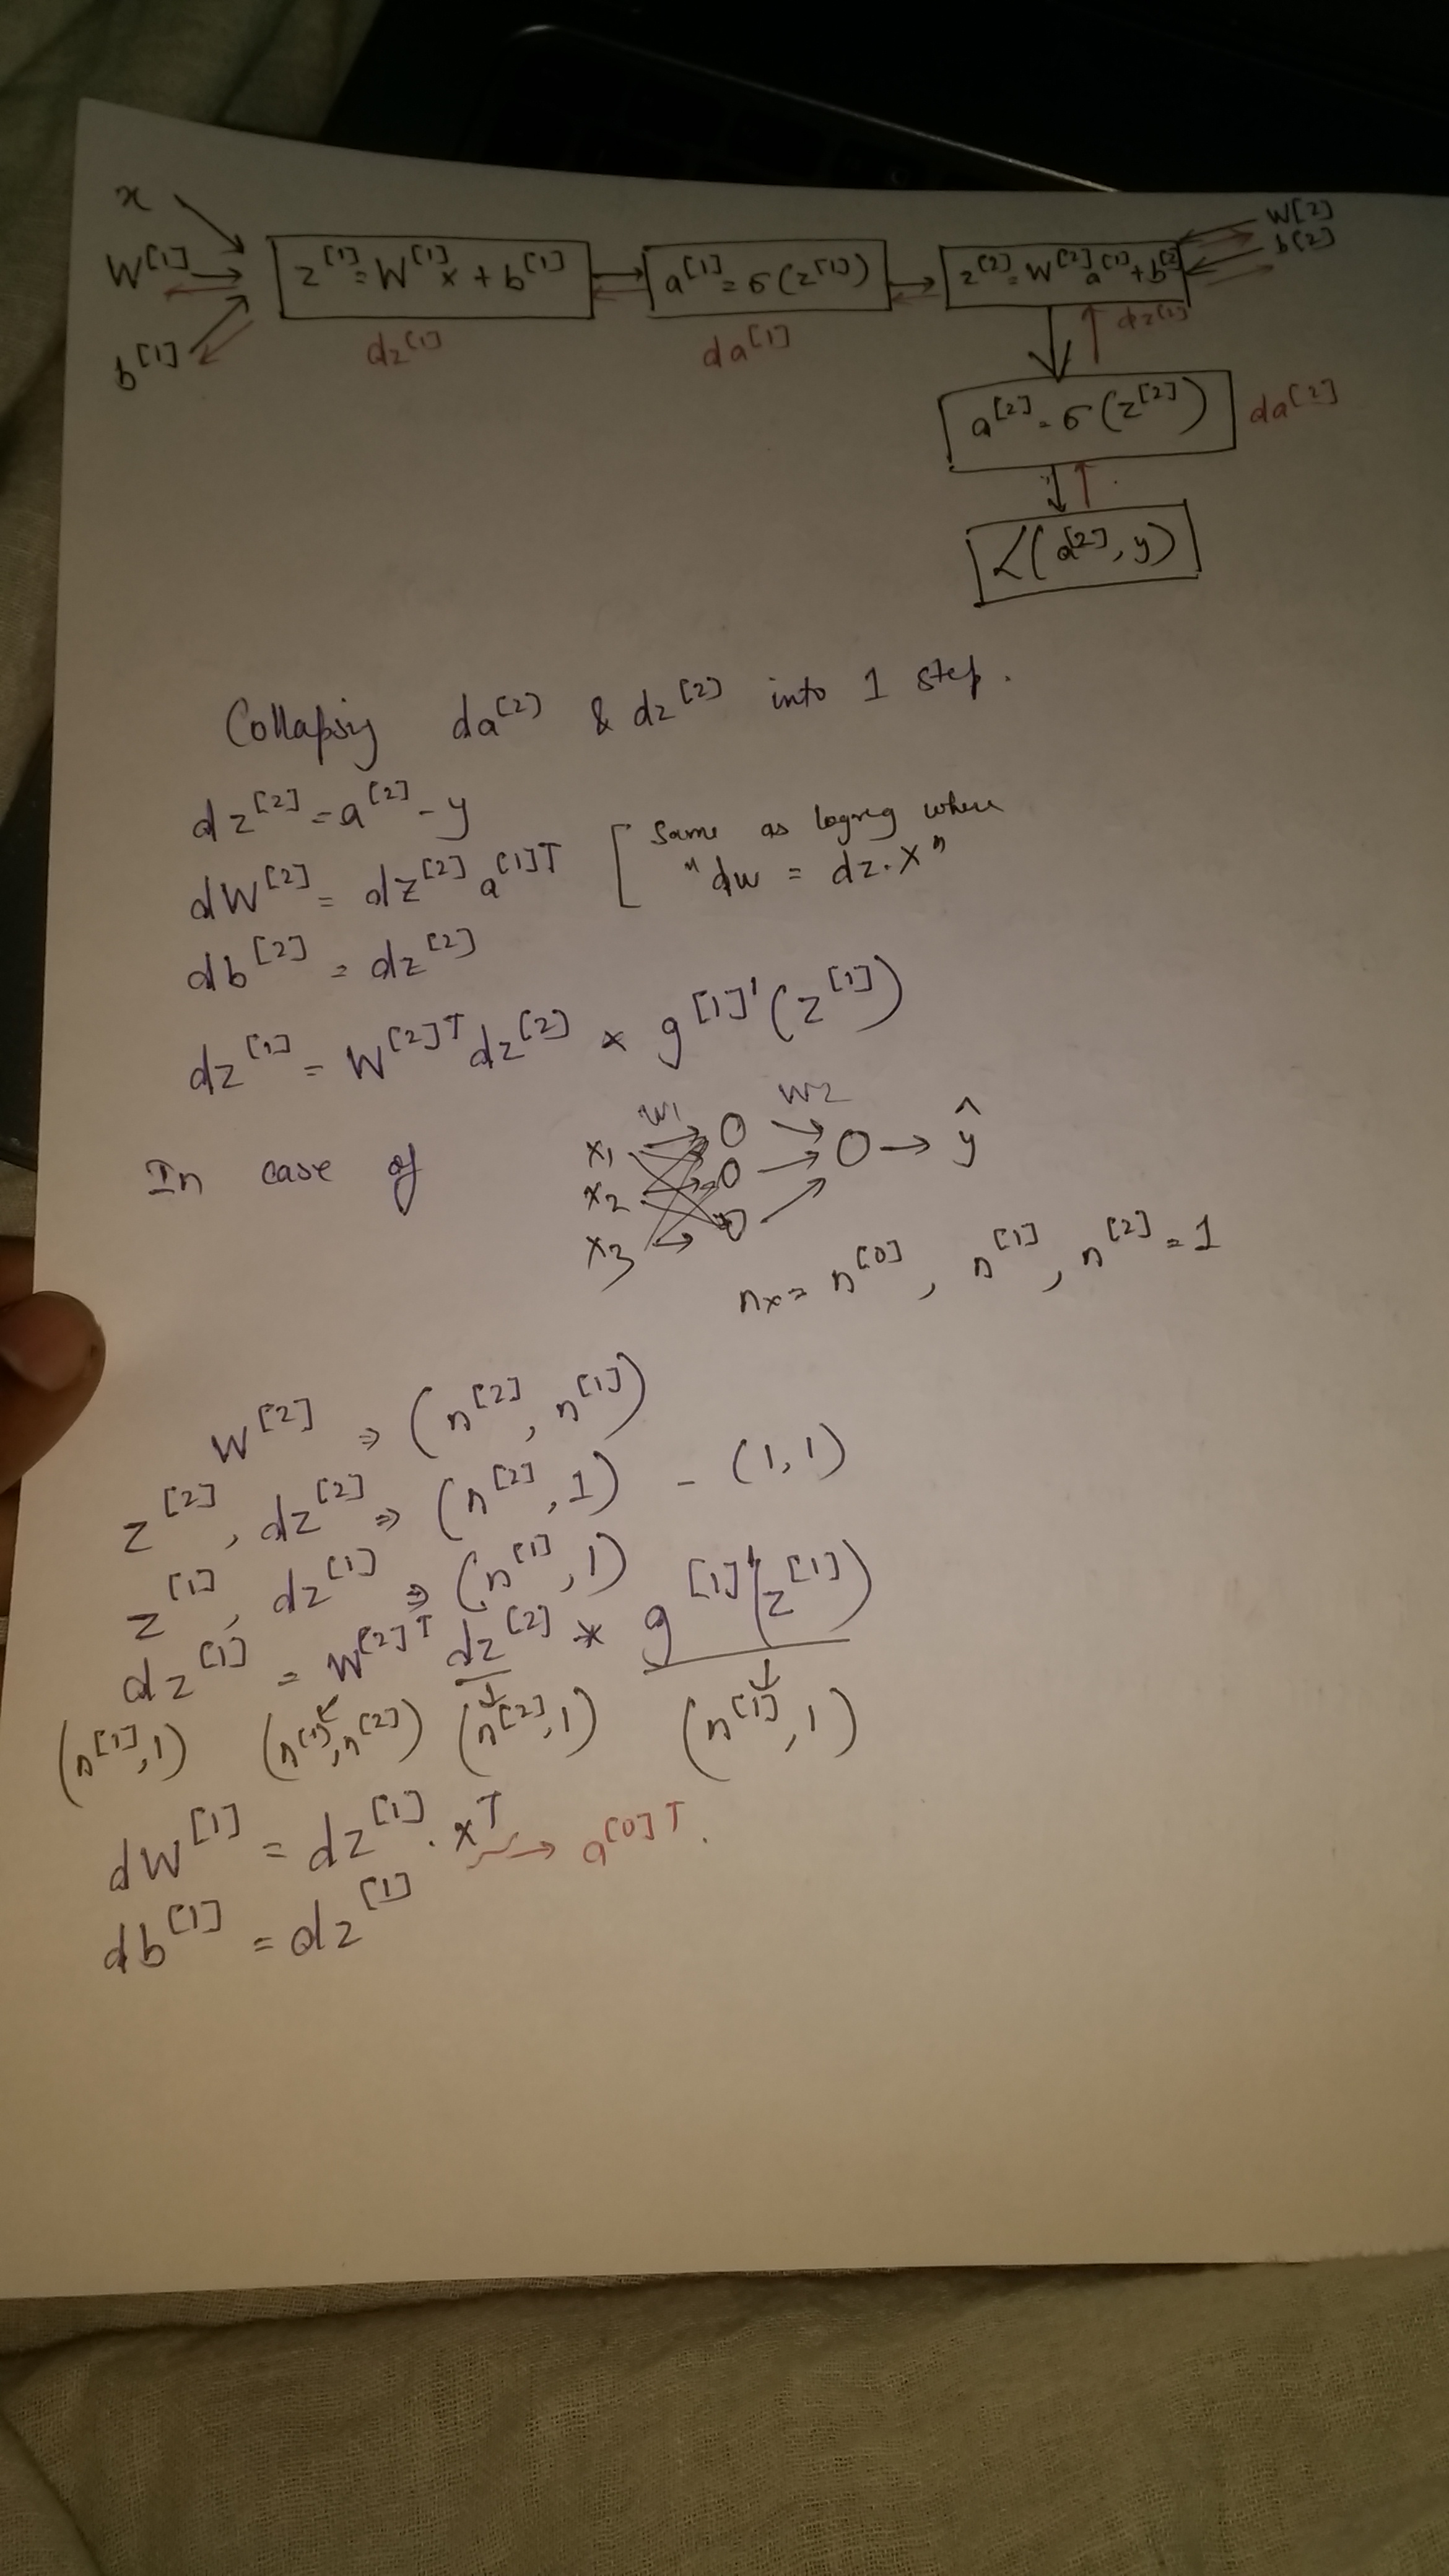 x
W[1]
b[1]
z[1] = W[1]x + b[1]
dz[1]
a[1] = σ(z[1])
da[1]
z[2] = W[2]a[1] + b[2]
W[2]
b[2]
dz[2]
a[2] = σ(z[2])
da[2]
L(a[2], y)
Collapsing da[2] & dz[2] into 1 step.
dz[2] = a[2] - y
dW[2] = dz[2] a[1]T [ Same as logreg where
"dw = dz.x"
db[2] = dz[2]
dz[1] = W[2]T dz[2] * g[1]'(z[1])
In case of
W1 W2
x1
x2
x3
ŷ
nx = n[0], n[1], n[2] = 1
W[2] ⇒ (n[2], n[1])
z[2], dz[2] ⇒ (n[2], 1) - (1, 1)
z[1], dz[1] ⇒ (n[1], 1)
dz[1] = W[2]T dz[2] * g[1]'(z[1])
(n[1], 1) (n[1], n[2]) (n[2], 1) (n[1], 1)
dW[1] = dz[1] . xT → a[0]T.
db[1] = dz[1]